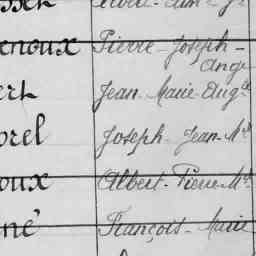 enoux Pierre-Joseph-
Ange
ert Jean Marie Aug
orel Joseph-Jean-M
oux Albert-Pierre-M
né François-Marie